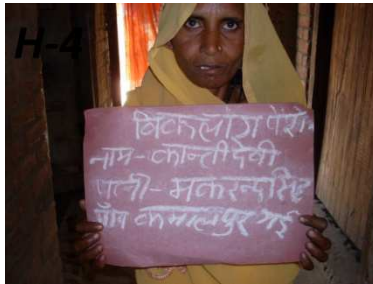 H-4
बिकलांग पेंशन
नाम-कान्ती देवी
पत्नी-मकरन्द सिंह
ग्राम कमालपुर गई